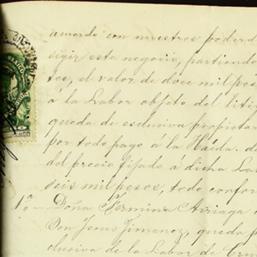 acuerdo con nuestros poderd
sigir este negocio, partiendo
tes, el valor de doce mil pes
á la Labor objeto del liti
queda de esclusiva propietar
por todo pago á la Viuda. de
del precio fijado á dicha La
seis mil pesos, todo confor
1º — Doña Fermina Arriaga
Don Jesus Jimenez, queda p
clusiva de la Labor de